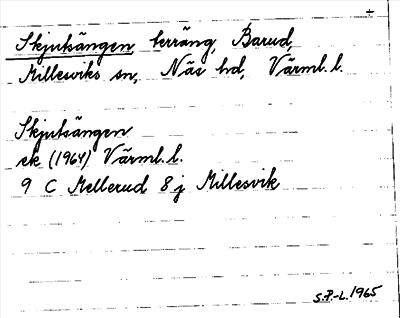 ±
Skjutsängen, terräng, Barud,
Millesviks sn, Näs hd, Värml. l.
Skjutsängen
ek (1964) Värml. l.
9 C Mellerud 8 j Millesvik
S.P.-L. 1965